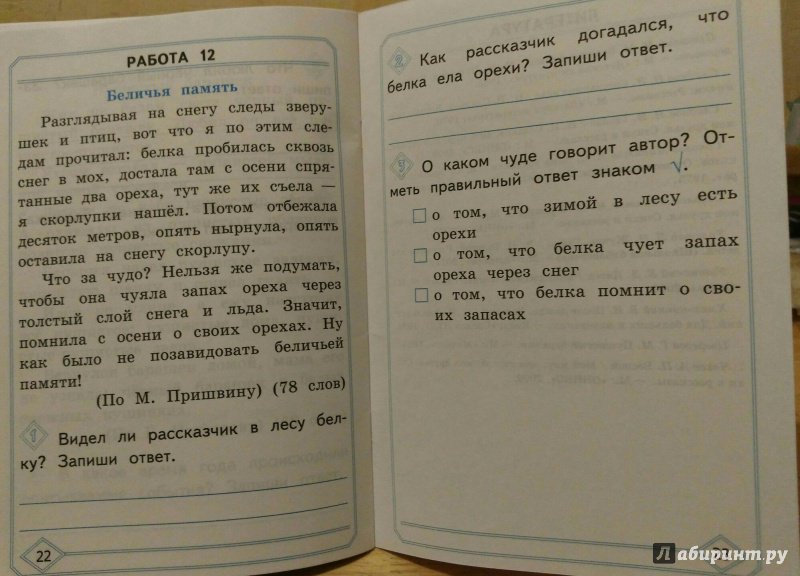 РАБОТА 12
Беличья память
Разглядывая на снегу следы зверу-
шек и птиц, вот что я по этим сле-
дам прочитал: белка пробилась сквозь
снег в мох, достала там с осени спря-
танные два ореха, тут же их съела —
я скорлупки нашёл. Потом отбежала
десяток метров, опять нырнула, опять
оставила на снегу скорлупу.
Что за чудо? Нельзя же подумать,
чтобы она чуяла запах ореха через
толстый слой снега и льда. Значит,
помнила с осени о своих орехах. Ну
как было не позавидовать беличьей
памяти!
(По М. Пришвину) (78 слов)
1 Видел ли рассказчик в лесу бел-
ку? Запиши ответ.
22
2 Как рассказчик догадался, что
белка ела орехи? Запиши ответ.
3 О каком чуде говорит автор? От-
меть правильный ответ знаком √.
о том, что зимой в лесу есть
орехи
о том, что белка чует запах
ореха через снег
о том, что белка помнит о сво-
их запасах
Лабиринт.ру